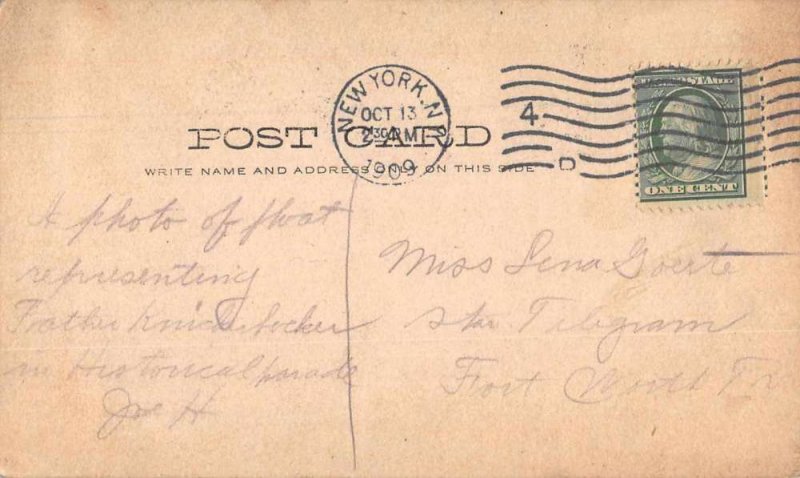 NEW YORK, N.Y.
OCT 13
2 30 PM
1909
4
D
ONE CENT
POST CARD
WRITE NAME AND ADDRESS ONLY ON THIS SIDE
A photo of float
representing
Father Knickerbocker
in Historical parade
Joe H
Miss Lena Goerte
Star Telegram
Fort Worth Tx